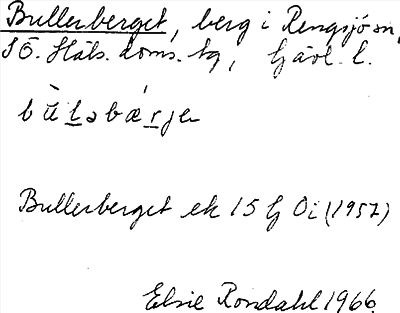 Bullerberget, berg i Rengsjö sn,
SÖ. Häls. doms. tg, Gävl. l.
bùləbǽrjeɴ
Bullerberget ek 15 G Oi (1957)
Elsie Rondahl 1966.